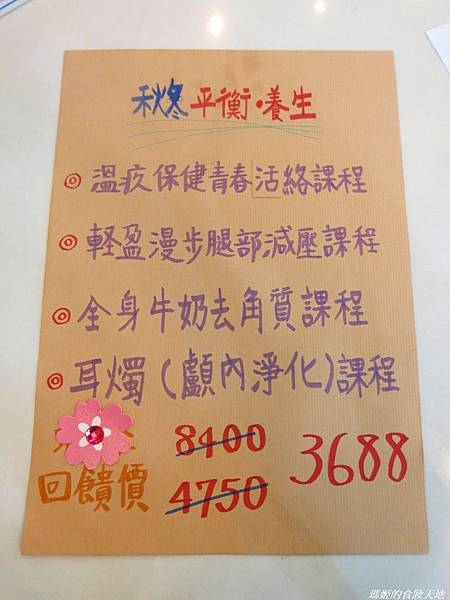 秋冬平衡·養生
◎ 溫疫保健青春活絡課程
◎ 輕盈漫步腿部減壓課程
◎ 全身牛奶去角質課程
◎ 耳燭(顱內淨化)課程
8400
回饋價 4750 3688
瑪姬的食妝天地